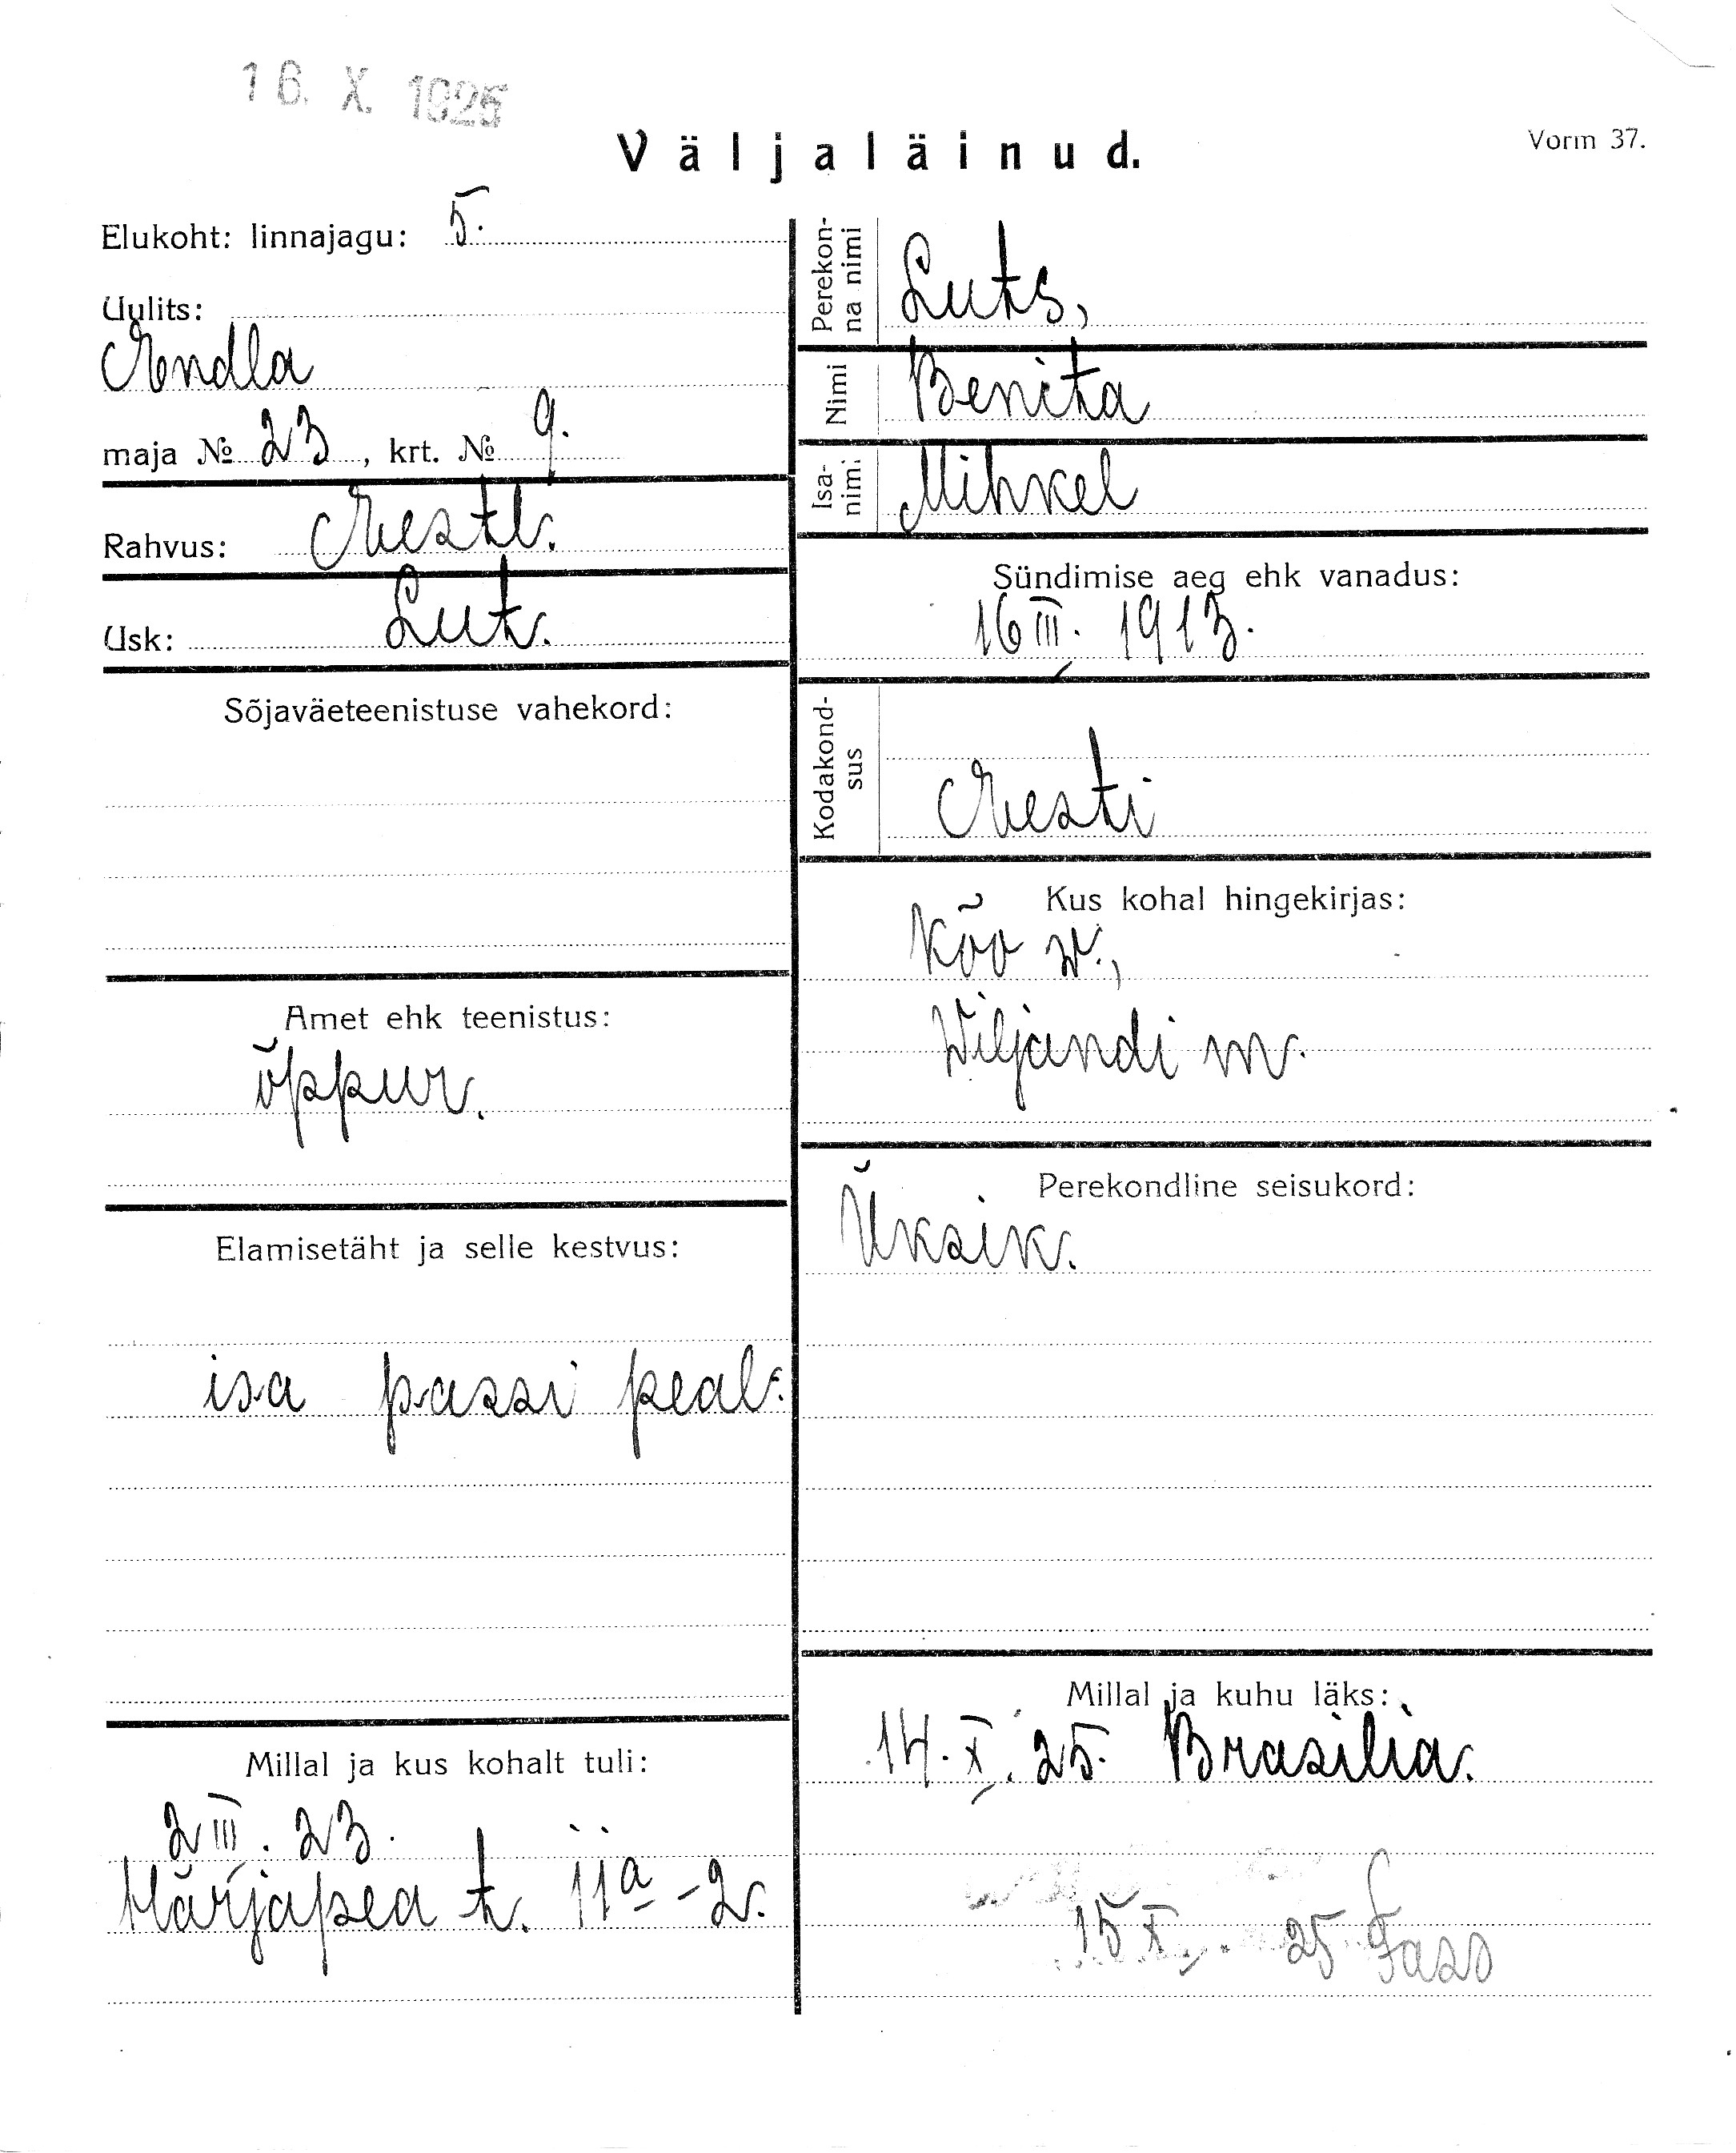 16. X. 1925
Väljaläinud.
Vorm 37.
Elukoht: linnajagu: 5.
Uulits:
Endla
maja № 23, krt. № 9.
Rahvus: Eestl.
Usk: Lut.
Sõjaväeteenistuse vahekord:
Amet ehk teenistus:
õppur.
Elamisetäht ja selle kestvus:
isa passi peal.
Millal ja kus kohalt tuli:
2 III. 23.
Härjapea t. 11a - 2.
Perekonna nimi
Luts,
Nimi
Benita
Isanimi
Mihkel
Sündimise aeg ehk vanadus:
16 III. 1913.
Kodakondsus
Eesti
Kus kohal hingekirjas:
Kõo w.,
Wiljandi m.
Perekondline seisukord:
Üksik.
Millal ja kuhu läks:
14. X. 25. Brasilia.
15 X. 25